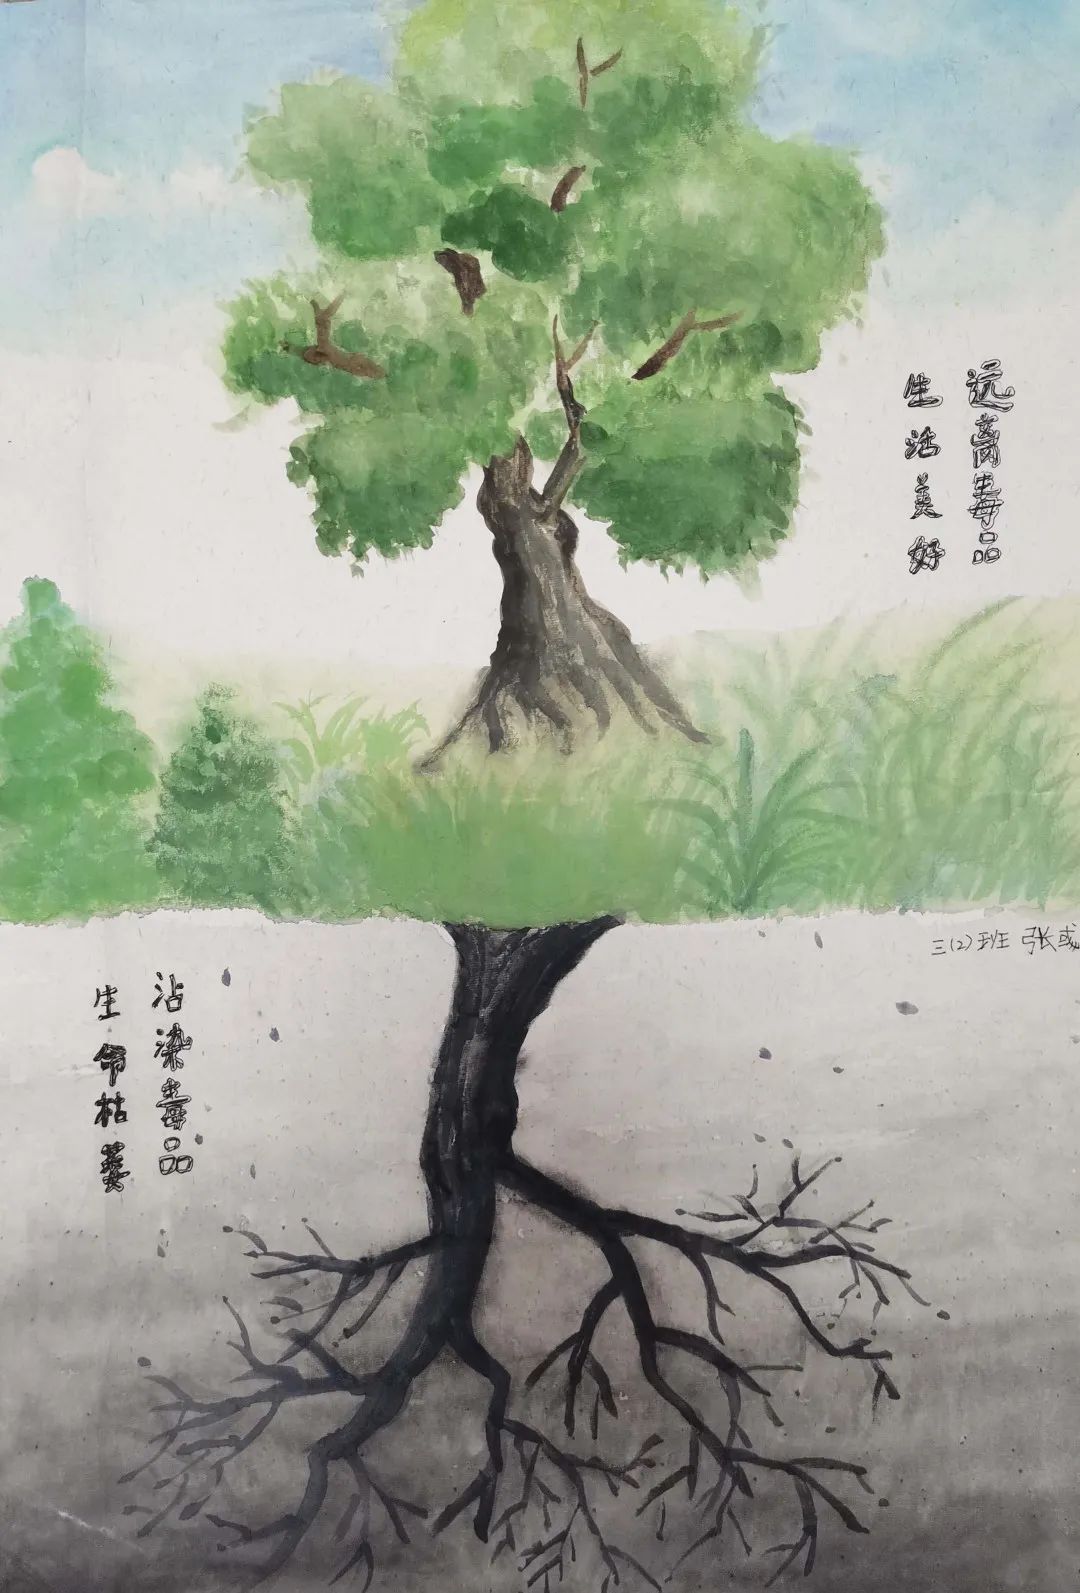 远离毒品
生活美好
三(2)班 张彧
沾染毒品
生命枯萎